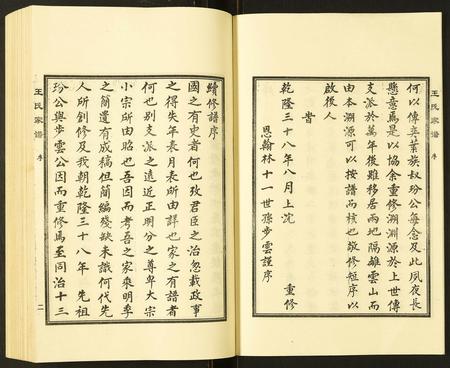 何以傳奕葉族叔玢公每念及此夙夜長
懸意焉是以協余重修溯淵源於上世傳
支派於萬年後雖移居兩地隔離雲山而
由本溯源可以按譜而核也敬修短序以
啟後人
皆
乾隆三十八年八月上浣 重修
恩翰林十一世孫步雲謹序
王氏家譜 序
續修譜序
國之有史者何也攷君臣之治忽載政事
之得失年表月表所由詳也家之有譜者
何也別支派之遠近正明分之尊卑大宗
小宗所由昭也吾因而考吾之家乘明季
之簡遺有成稿但簡編殘缺未識何代先
人所創修及我朝乾隆三十八年 先祖
玢公與步雲公因而重修焉至同治十三
王氏家譜 序 二